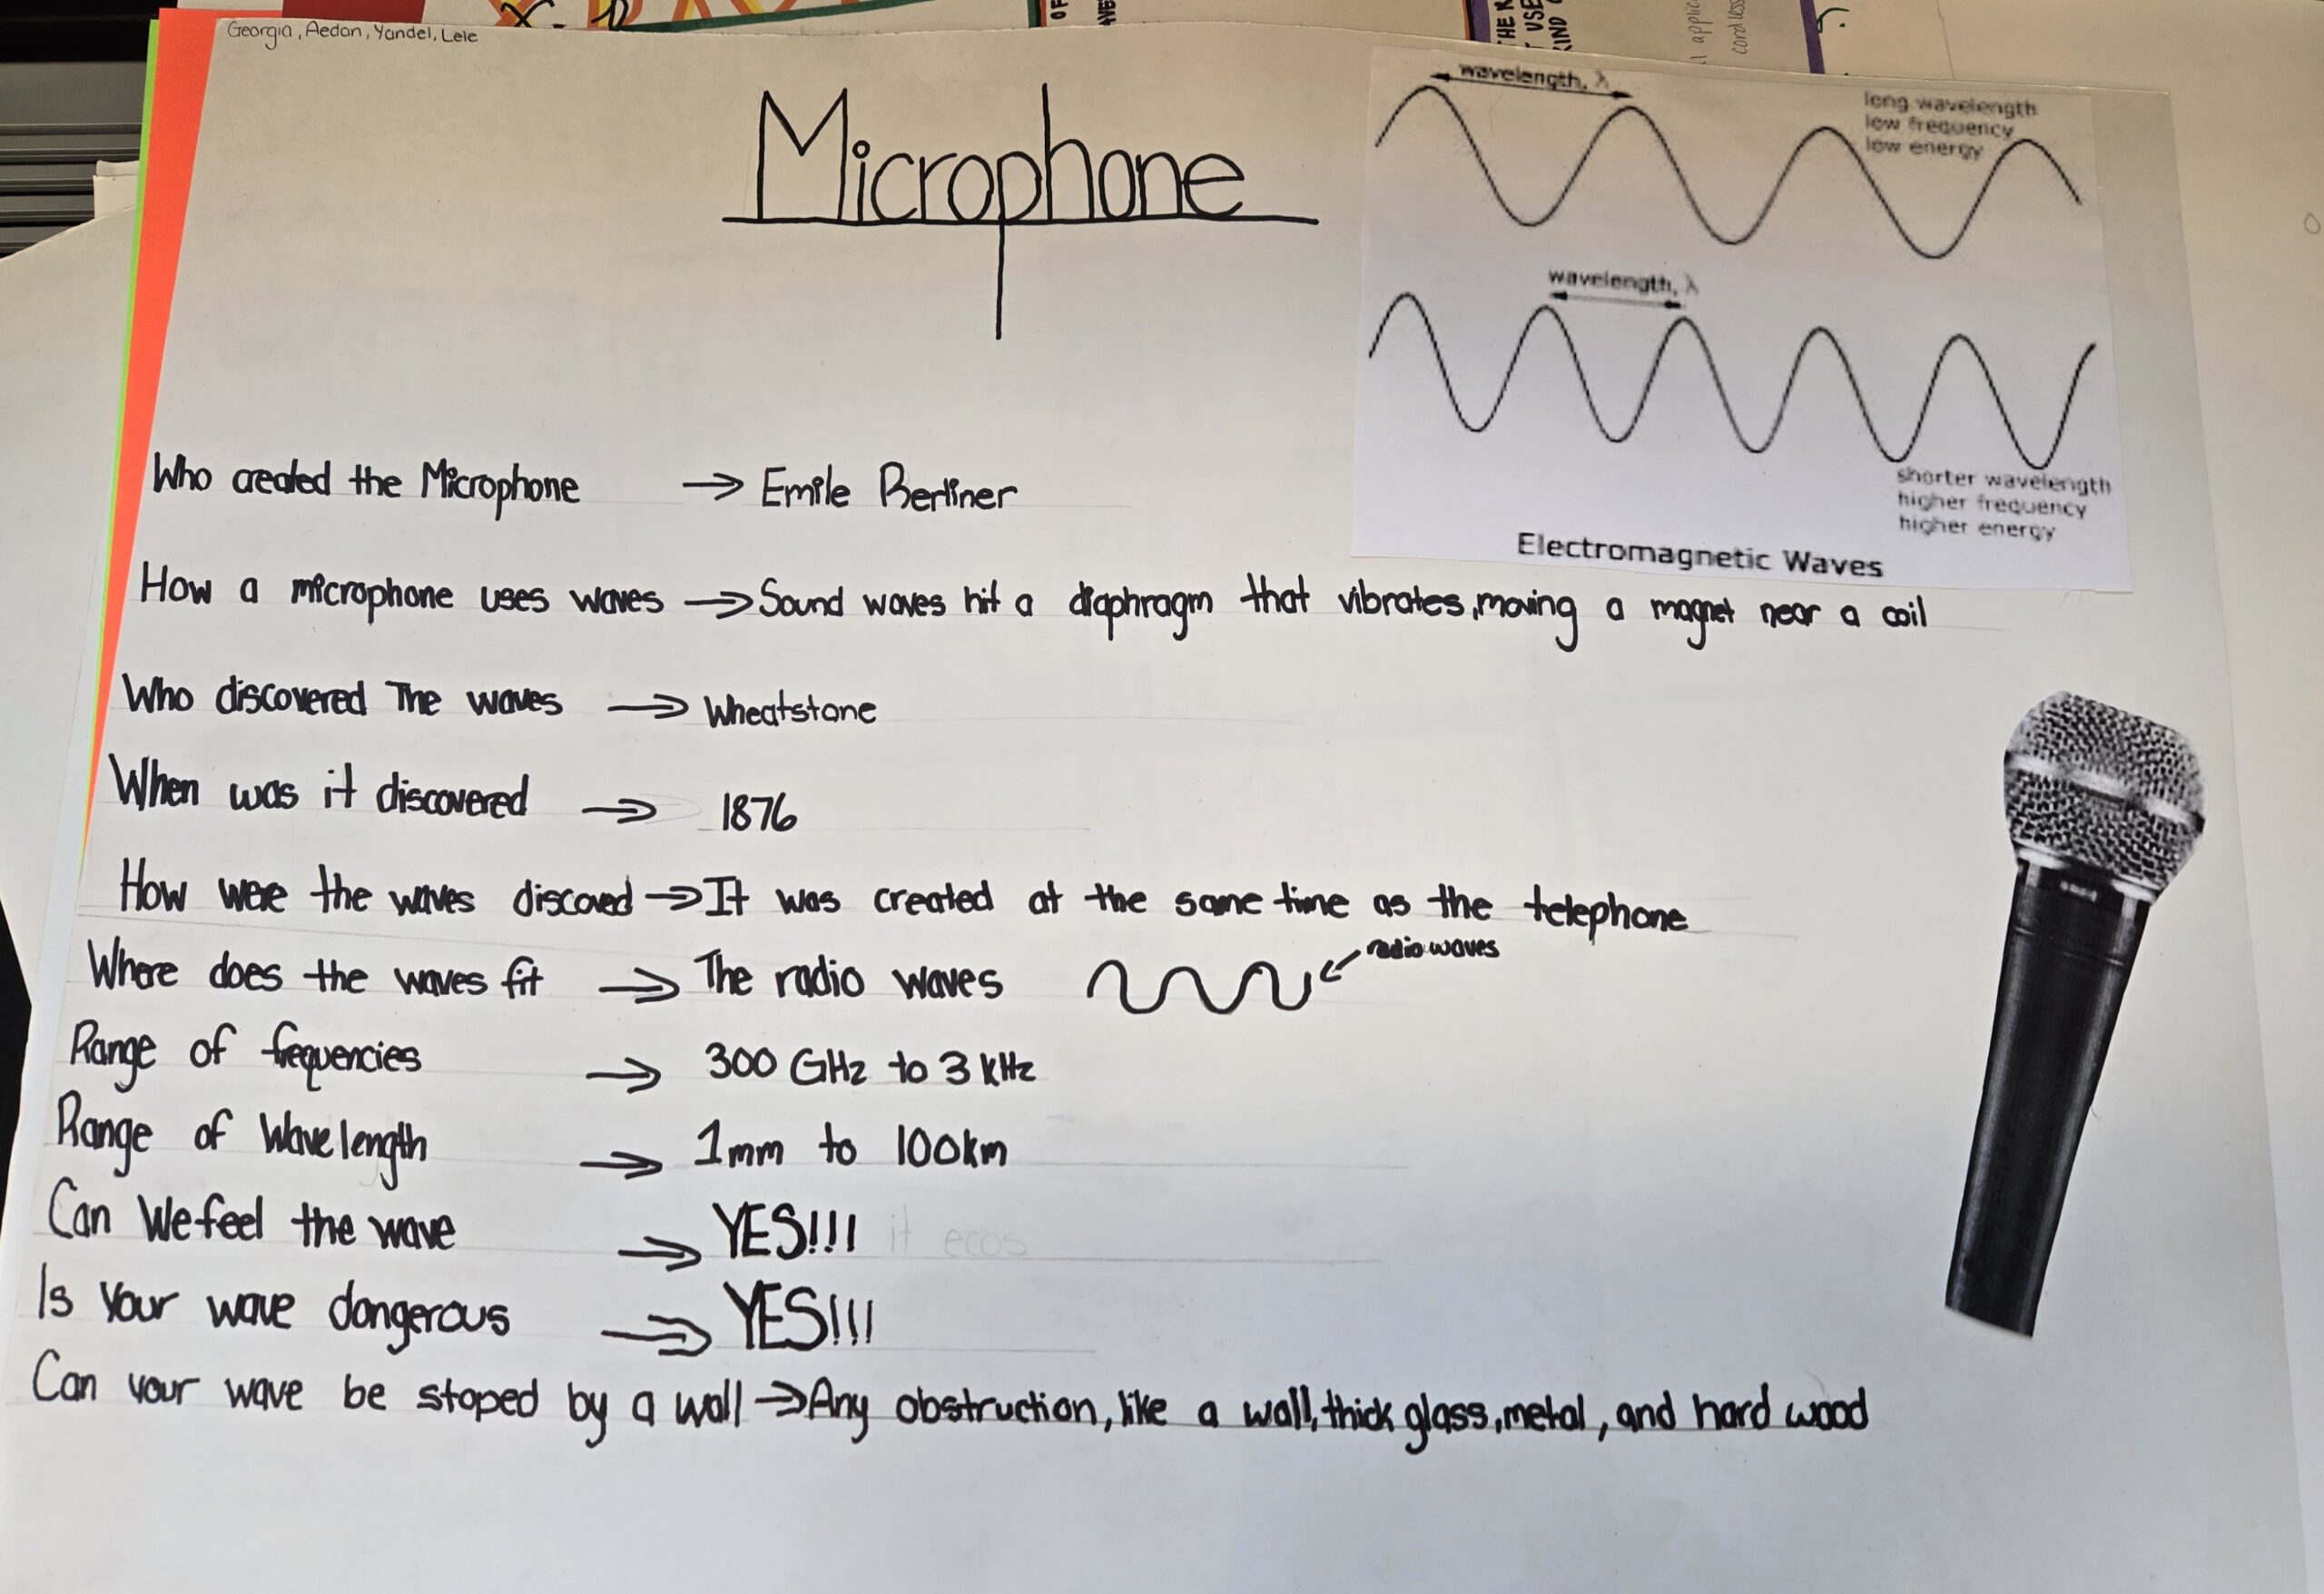 Georgia, Aedan, Yandel, Lele
OF
THE R
T USE
KIND
cordless
Microphone
wavelength, λ
long wavelength
low frequency
low energy
wavelength, λ
shorter wavelength
higher frequency
higher energy
Electromagnetic Waves
Who created the Microphone → Emile Berliner
How a microphone uses waves → Sound waves hit a diaphragm that vibrates, moving a magnet near a coil
Who discovered The waves → Wheatstone
When was it discovered → 1876
How were the waves discoved → It was created at the same time as the telephone
Where does the waves fit → The radio waves
radio waves
Range of frequencies → 300 GHz to 3 kHz
Range of Wavelength → 1mm to 100km
Can We feel the wave → YES!!! it ecos
Is Your wave dangerous → YES!!!
Can your wave be stoped by a wall → Any obstruction, like a wall, thick glass, metal, and hard wood